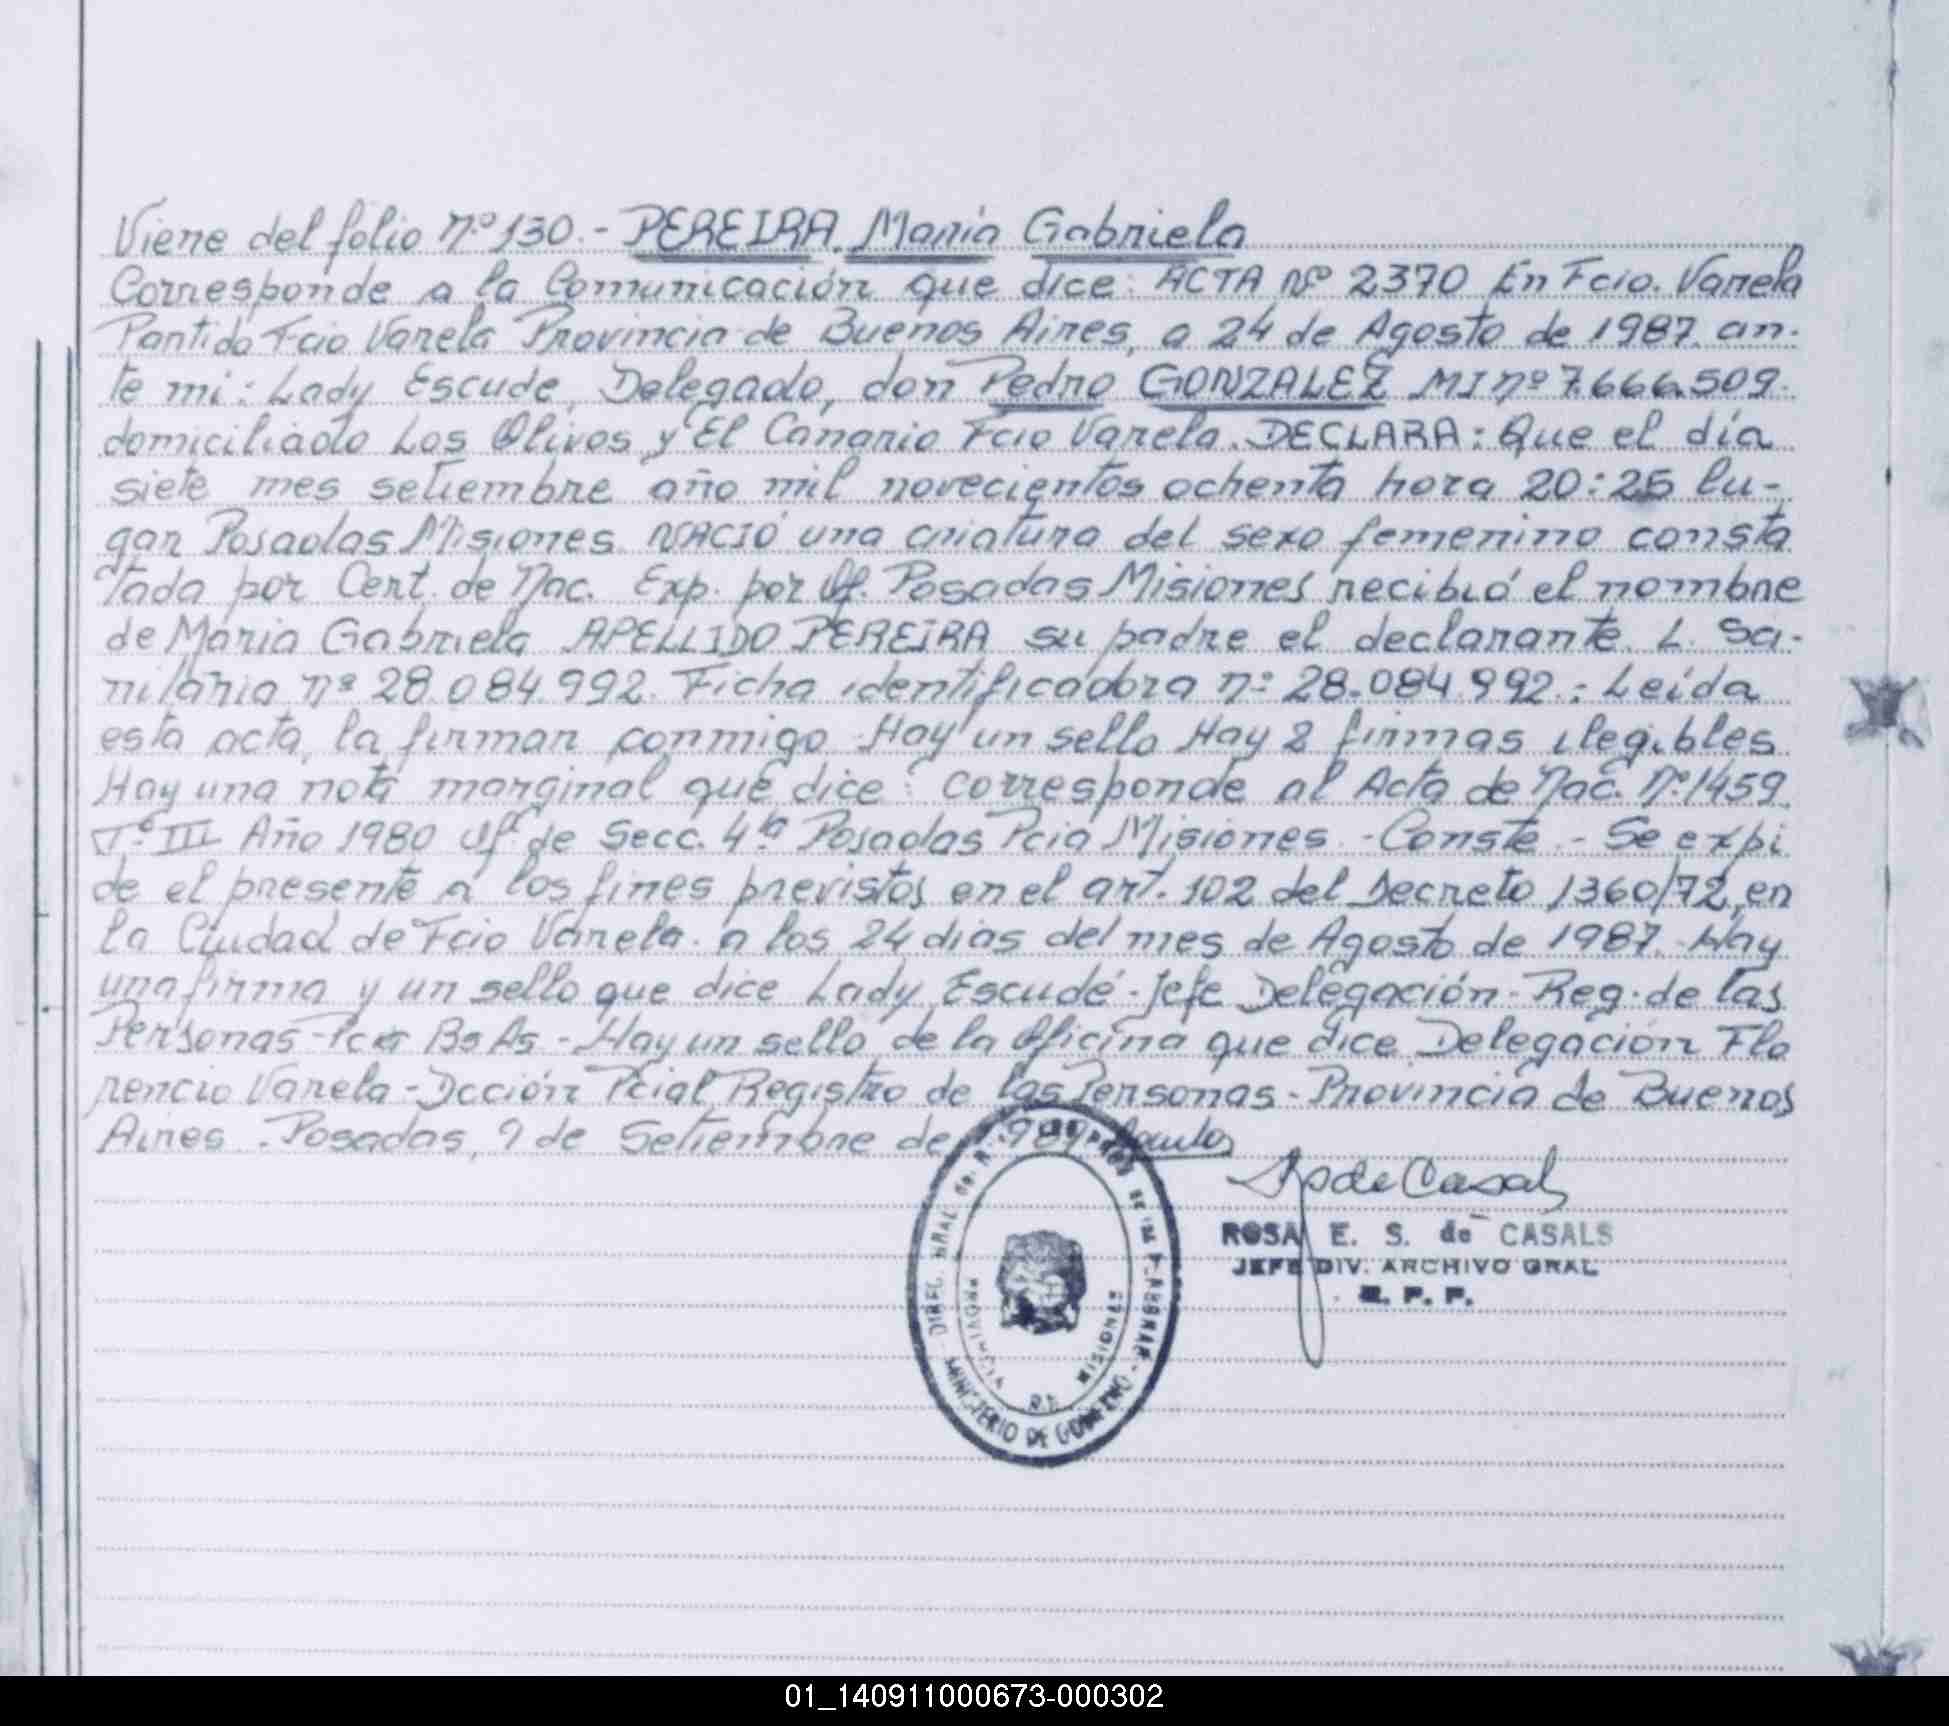 Viene del folio Nº 130.- PEREIRA, María Gabriela
Corresponde a la Comunicación que dice: ACTA Nº 2370 En Fcio. Varela
Partido Fcio Varela Provincia de Buenos Aires, a 24 de Agosto de 1987. an-
te mi: Lady Escude, Delegado, don Pedro GONZALEZ MI nº 7.666.509.
domiciliado Los Olivos y El Canario Fcio Varela. DECLARA: Que el día
siete mes setiembre año mil novecientos ochenta hora 20:25 lu-
gar Posadas Misiones NACIÓ una criatura del sexo femenino consta
tada por Cert. de Nac. Exp. por Of. Posadas Misiones recibió el nombre
de María Gabriela APELLIDO PEREIRA su padre el declarante. L. Sa-
nitaria Nº 28.084.992. Ficha identificadora nº 28.084.992.: Leída
esta acta, la firman conmigo Hay un sello Hay 2 firmas ilegibles
Hay una nota marginal que dice: corresponde al Acta de Nac. Nº 1459
Tº III Año 1980 Of. de Secc. 4ta Posadas Pcia Misiones. - Conste. - Se expi
de el presente a los fines previstos en el art. 102 del Decreto 1360/72, en
la Ciudad de Fcio Varela. a los 24 dias del mes de Agosto de 1987. Hay
una firma y un sello que dice Lady Escudé - Jefe Delegación - Reg. de las
Personas - Pcia Bs As - Hay un sello de la Oficina que dice Delegación Flo
rencio Varela - Dcción Pcial Registro de las Personas - Provincia de Buenos
Aires. Posadas, 9 de Setiembre de
ROSA E. S. de CASALS
JEFE DIV. ARCHIVO GRAL
R. P. P.
MINISTERIO DE GOBIERNO
PROVINCIA DE MISIONES
01_140911000673-000302